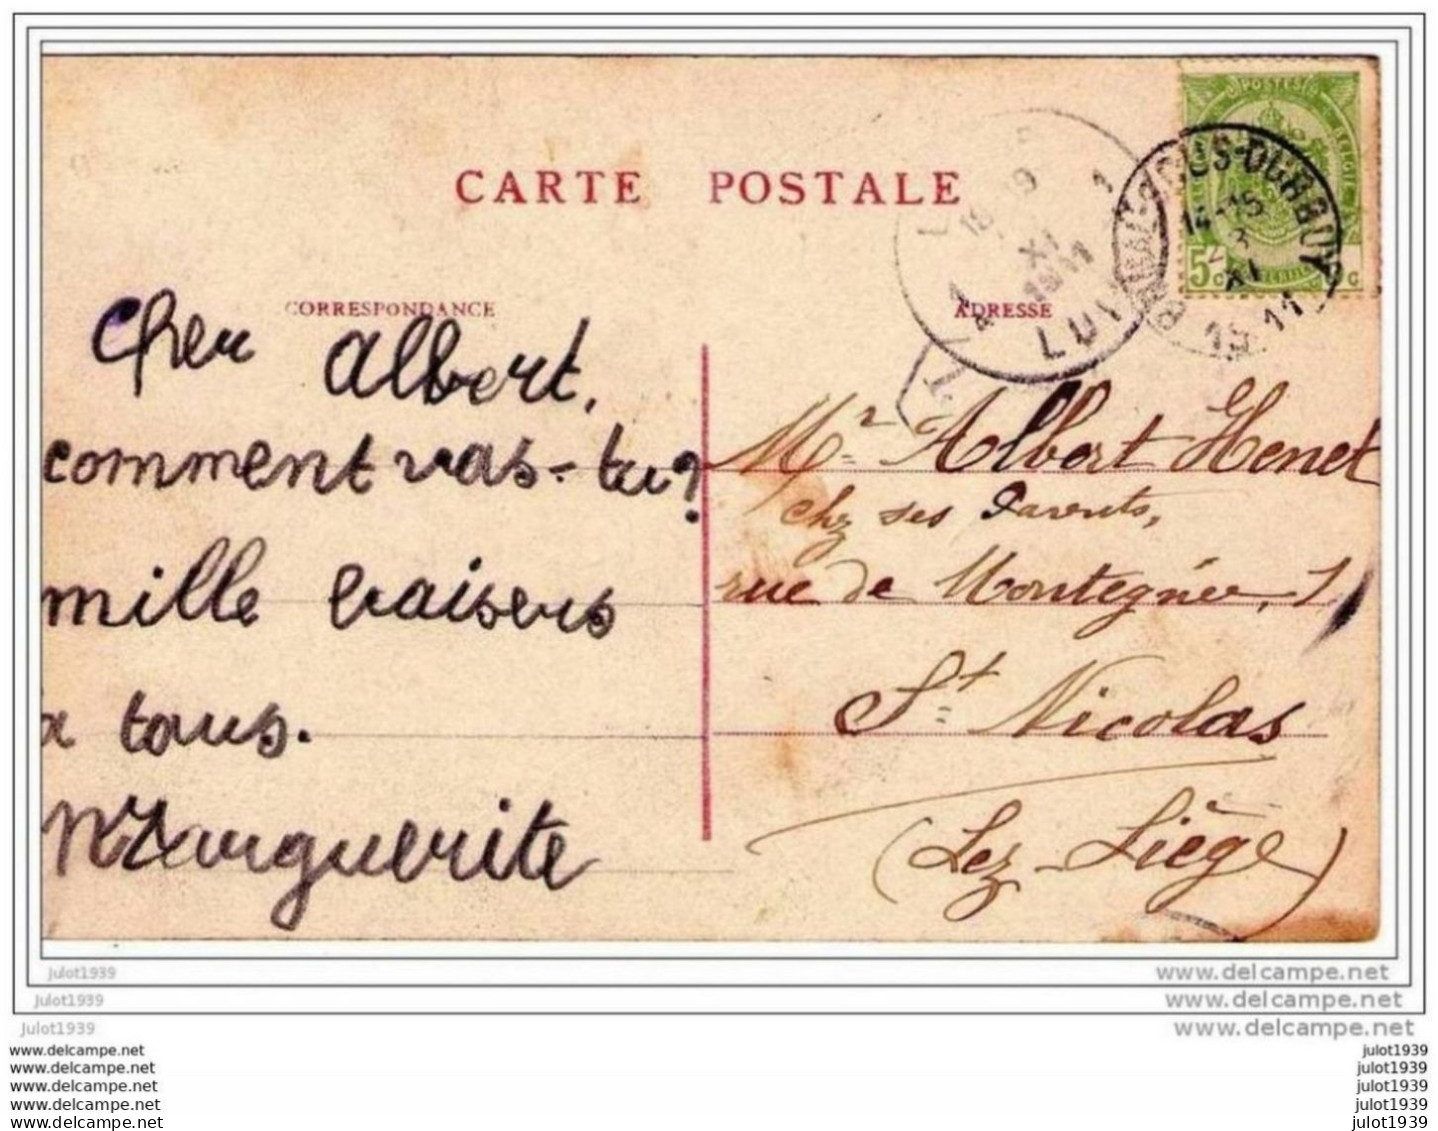 CARTE POSTALE
CORRESPONDANCE
Cher Albert,
comment vas-tu?
mille baisers
à tous.
Marguerite
ADRESSE
POSTES
BELGIQUE
5 c
14-15
XI
1911
Mr Albert Henet
chez ses Parents,
rue de Montegnée, 1
St Nicolas
(Lez-Liége)
julot1939
julot1939
julot1939
www.delcampe.net
www.delcampe.net
www.delcampe.net
www.delcampe.net
www.delcampe.net
www.delcampe.net
www.delcampe.net
www.delcampe.net
julot1939
julot1939
julot1939
julot1939
julot1939